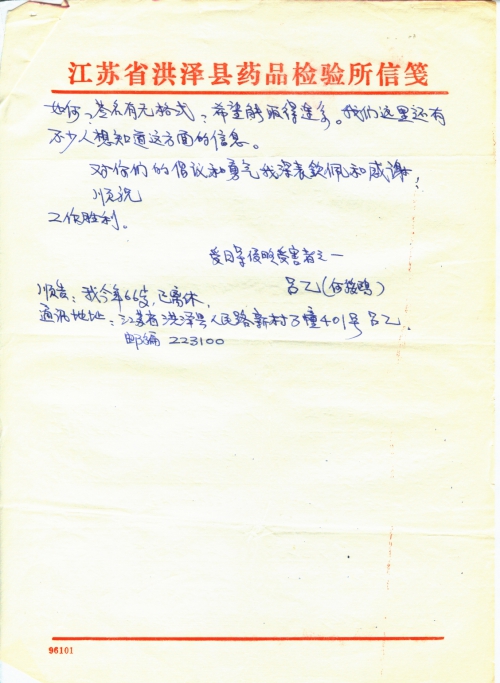 江苏省洪泽县药品检验所信笺
如何？签名有无格式？希望能取得连系。我们这里还有
不少人想知道这方面的信息。
对你们的倡议和勇气我深表钦佩和感谢！
顺祝
工作胜利。
受日军侵略受害者之一
吕乙(何
顺告：我今年66岁，已离休，
通讯地址：江苏省洪泽县人民路新村5幢401号吕乙.
邮编 223100
96101